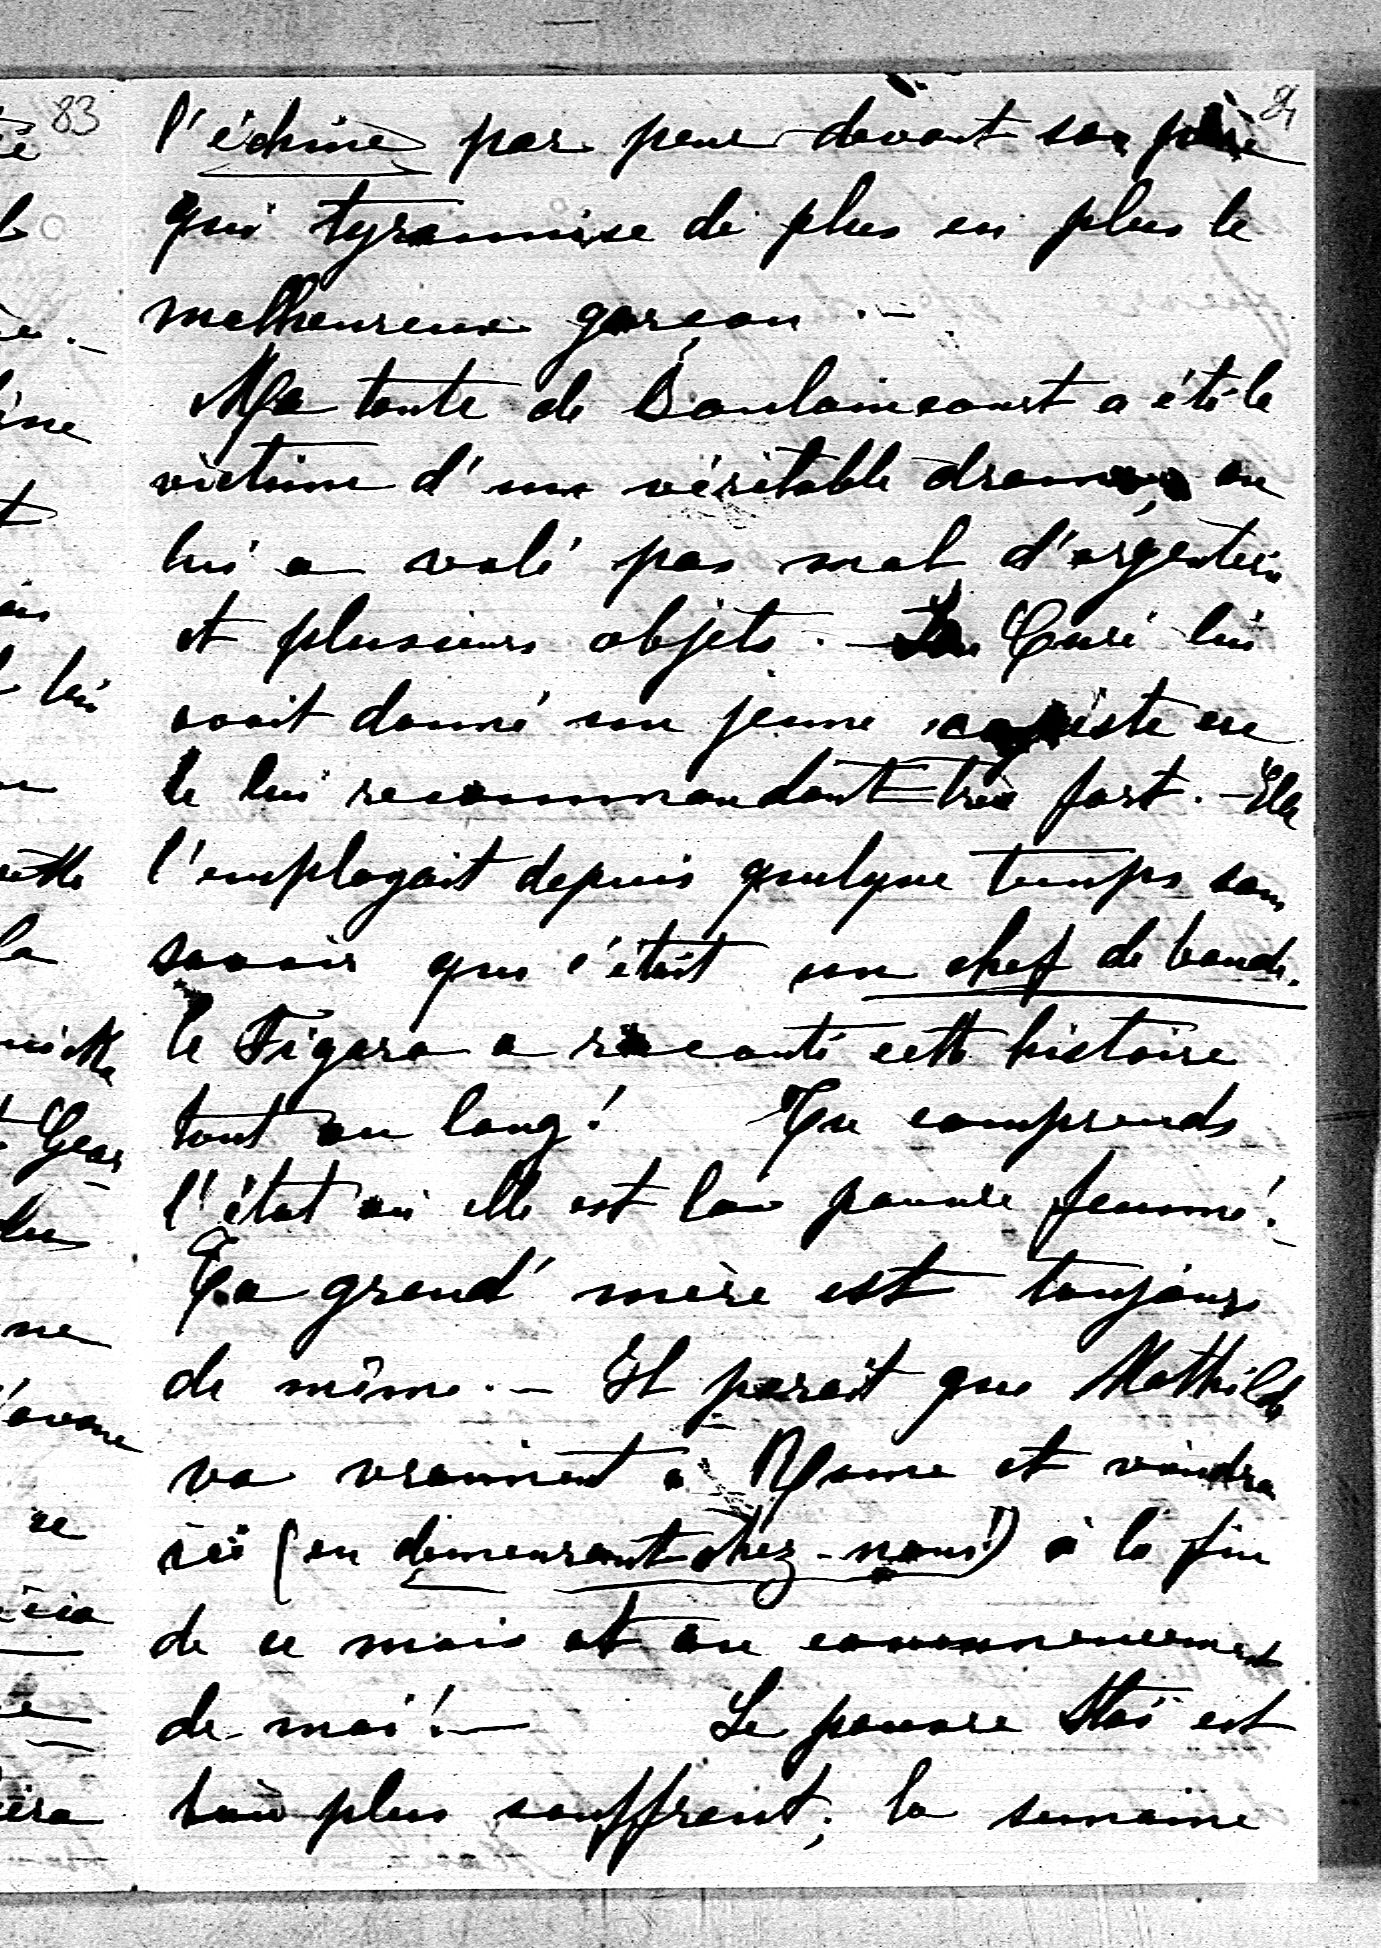 83
l'échine par peur devant son père
qui tyrannise de plus en plus le
malheureux garçon.—
Ma tante de Vaulaincourt a été le
victime d'un véritable drame, on
lui a volé pas mal d'argenterie
et plusieurs objets.— Le Curé lui
avait donné un jeune copiste en
le lui recommandant très fort.— Elle
l'employait depuis quelque temps sans
savoir que c'était un chef de bande.
le Figaro a raconté cette histoire
tout au long! Tu comprends
l'état où elle est la pauvre femme!—
Ta grand'mère est toujours
de même.— Il parait que Mathilde
va vraiment à Rome et viendra
ici (en demeurant chez-nous!) à la fin
de ce mois et au commencement
de mai!— Le pauvre est
plus souffrant; la semaine